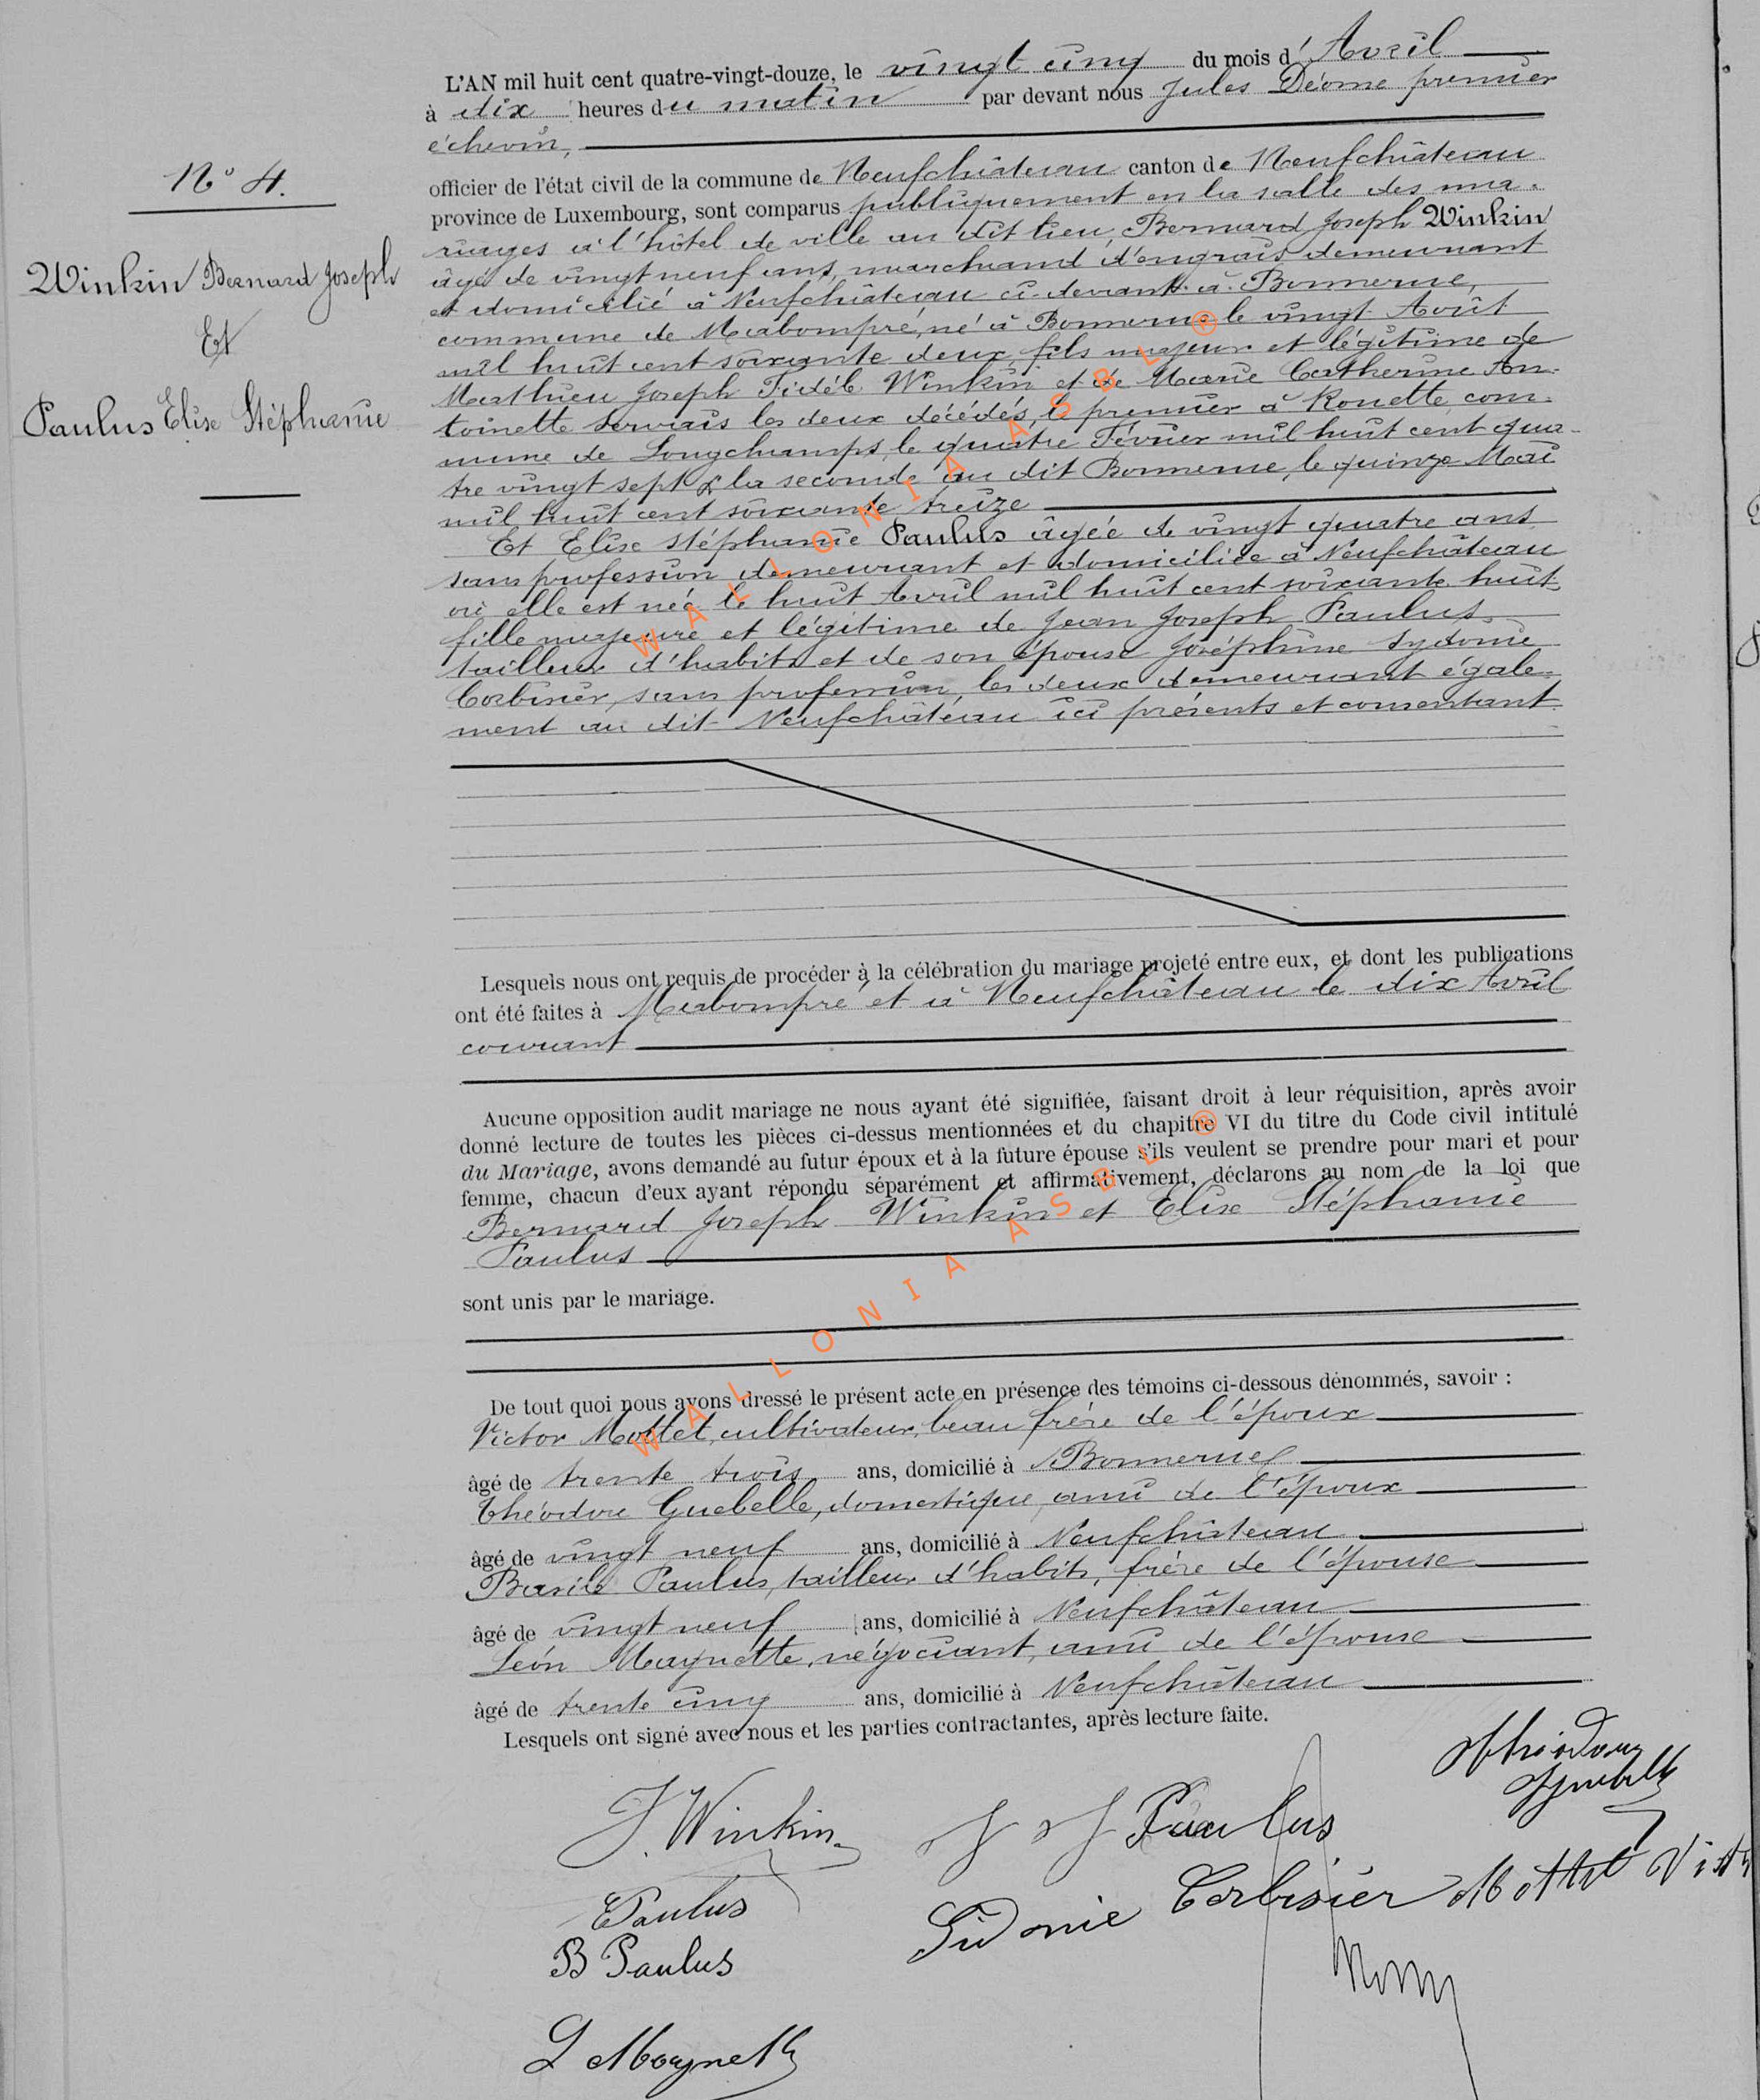 N° 4.
Winkin Bernard Joseph
Et
Paulus Elise Stéphanie
L'AN mil huit cent quatre-vingt-douze, le vingt cinq du mois d'Avril
à dix heures du matin par devant nous Jules Déome premier
échevin,
officier de l'état civil de la commune de Neufchâteau canton de Neufchâteau
province de Luxembourg, sont comparus publiquement en la salle des ma-
riages à l'hôtel de ville au dit lieu, Bernard Joseph Winkin
âgé de vingt neuf ans, marchand d'engrais demeurant
et domicilié à Neufchâteau ci-devant à Bonnerue,
commune de Mabompré, né à Bonnerue le vingt Août
mil huit cent soixante deux, fils majeur et légitime de
Mathieu Joseph Fidèle Winkin et de Marie Catherine An-
toinette Servais les deux décédés, le premier à Rouette com-
mune de Longchamps, le quatre Février mil huit cent qua-
tre vingt sept & la seconde au dit Bonnerue, le quinze Mai
mil huit cent soixante treize
Et Elise Stéphanie Paulus âgée de vingt quatre ans
sans profession demeurant et domiciliée à Neufchâteau
où elle est née le huit Avril mil huit cent soixante huit
fille majeure et légitime de Jean Joseph Paulus
tailleur d'habits et de son épouse Joséphine Sydonie
Corbisier, sans profession, les deux demeurant égale-
ment au dit Neufchâteau ici présents et consentant
Lesquels nous ont requis de procéder à la célébration du mariage projeté entre eux, et dont les publications
ont été faites à Mabompré et à Neufchâteau le dix Avril
courant
Aucune opposition audit mariage ne nous ayant été signifiée, faisant droit à leur réquisition, après avoir
donné lecture de toutes les pièces ci-dessus mentionnées et du chapitre VI du titre du Code civil intitulé
du Mariage, avons demandé au futur époux et à la future épouse s'ils veulent se prendre pour mari et pour
femme, chacun d'eux ayant répondu séparément et affirmativement, déclarons au nom de la loi que
Bernard Joseph Winkin et Elise Stéphanie
Paulus
sont unis par le mariage.
De tout quoi nous avons dressé le présent acte en présence des témoins ci-dessous dénommés, savoir :
Victor Mottet, cultivateur, beau frère de l'époux
âgé de trente trois ans, domicilié à Bonnerue
Théodore Guebelle, domestique, ami de l'époux
âgé de vingt neuf ans, domicilié à Neufchâteau
Basile Paulus, tailleur d'habits, frère de l'épouse
âgé de vingt neuf ans, domicilié à Neufchâteau
Léon Maynette, négociant, ami de l'épouse
âgé de trente cinq ans, domicilié à Neufchâteau
Lesquels ont signé avec nous et les parties contractantes, après lecture faite.
J. Winkin
J J Paulus
E Paulus
Sidonie Corbisier
B Paulus
L Maynette
WALLONIA ASBL ®
WALLONIA ASBL ®